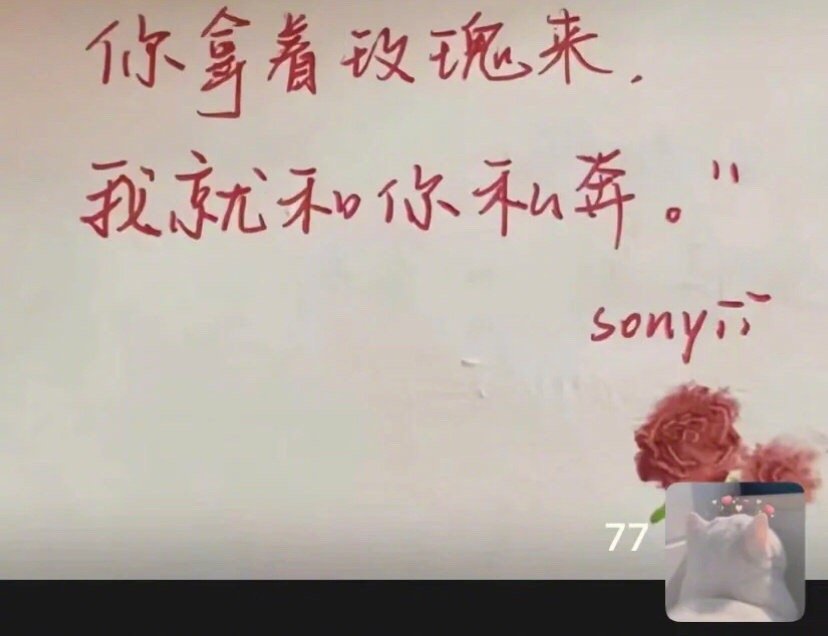 你拿着玫瑰来，
我就和你私奔。"
sony
77